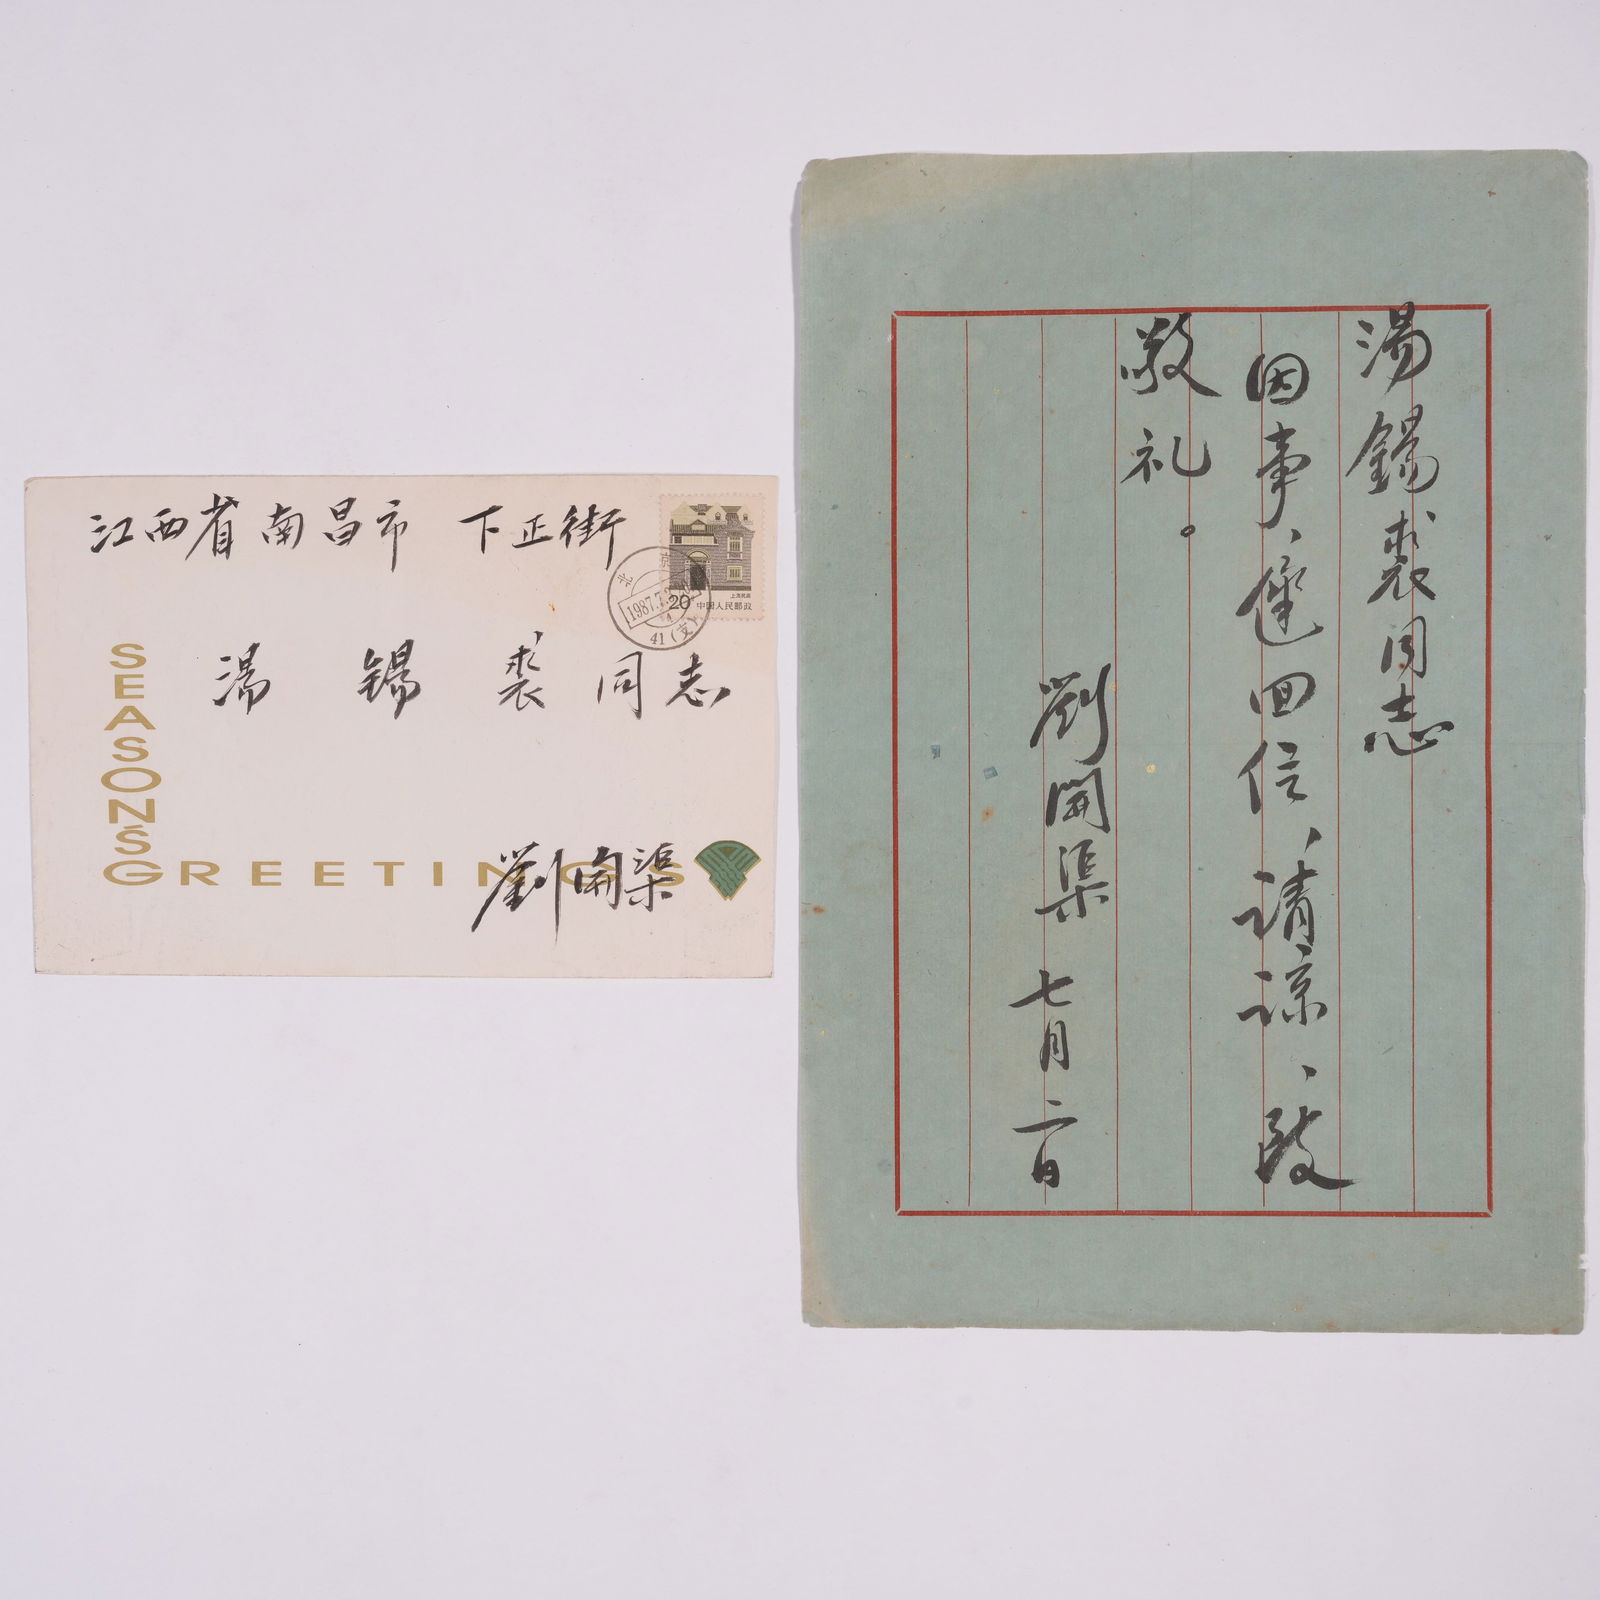 江西省南昌市 下正街
湯 锡 裘 同志
劉開渠
SEASON'S
GREETINGS
上海民居
20 中国人民邮政
北京
1987.7.2
41(支)
湯錫裘同志
因事、遲回信、请谅、致
敬礼。
劉開渠 七月二日